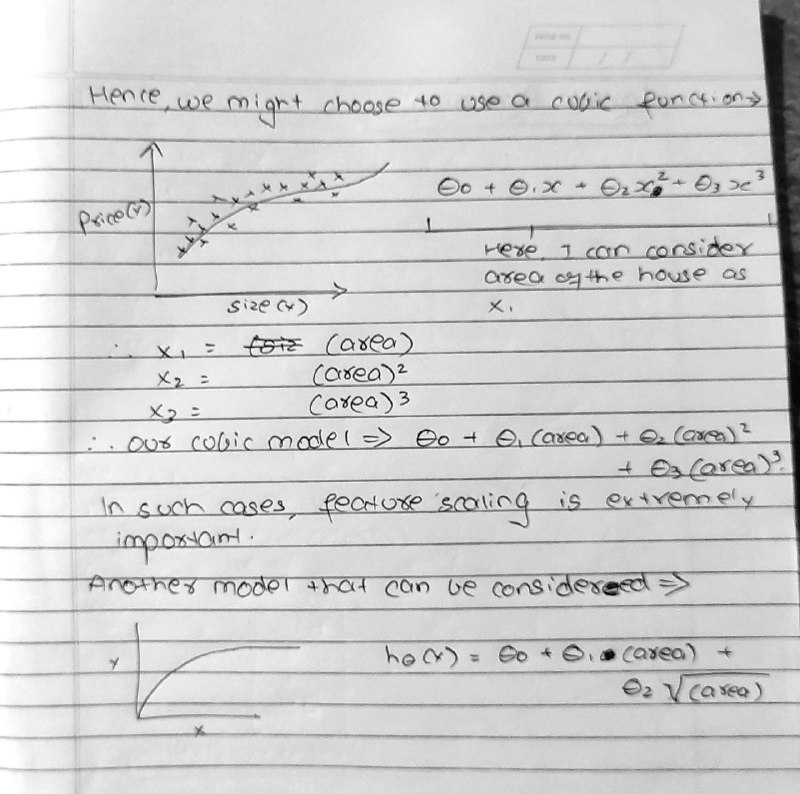 Hence, we might choose to use a cubic function⇒
Price(y)
size(x)
θ0 + θ1x + θ2x² + θ3x³
Here, I can consider
area of the house as
x1
∴ x1 = (area)
x2 = (area)²
x3 = (area)³
∴ our cubic model ⇒ θ0 + θ1(area) + θ2(area)²
+ θ3(area)³.
In such cases, feature scaling is extremely
important.
Another model that can be considered ⇒
y
x
hθ(x) = θ0 + θ1(area) +
θ2√(area)